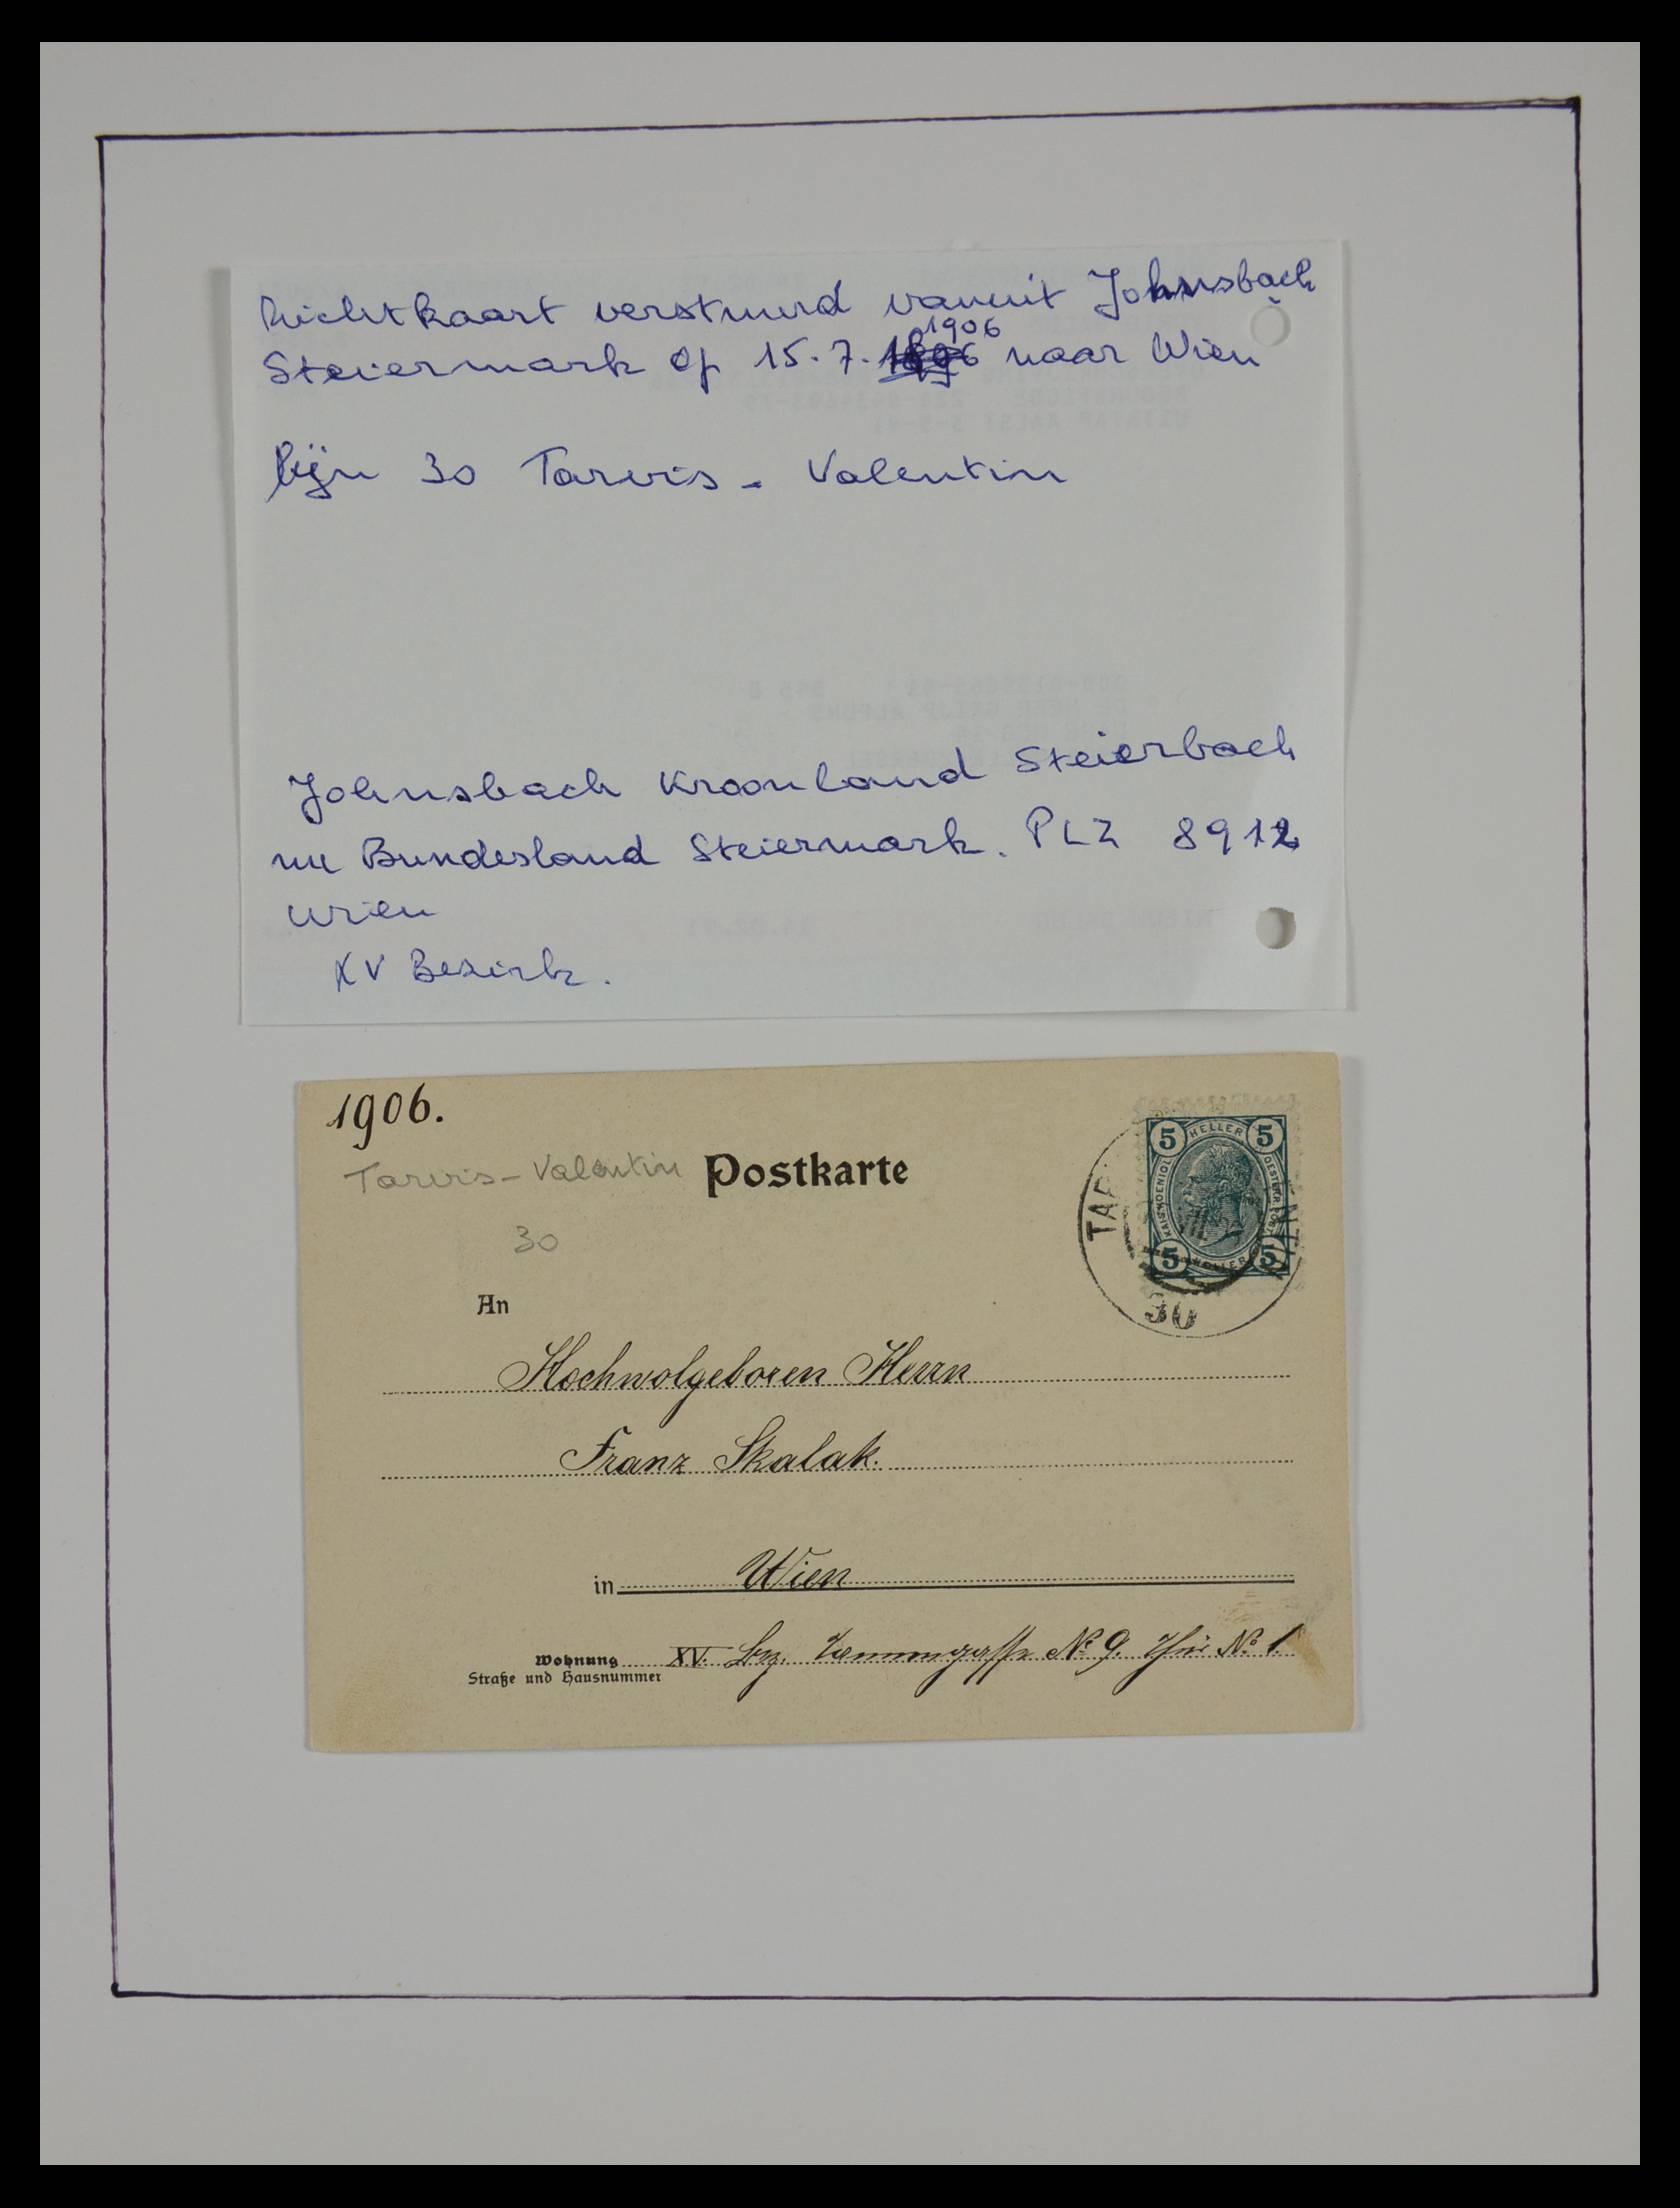 Zichtkaart verstuurd vanuit Johnsbach
Steiermark op 15.7. 1906 naar Wien
lijn 30 Tarvis - Valentin
Johnsbach Kroonland Steierbach
nu Bundesland Steiermark. PLZ 8912
Wien
XV Bezirk.
1906.
Tarvis - Valentin
30
Postkarte
5 HELLER 5
5 HELLER 5
TAR
NTI
30
An
Hochwolgeboren Herrn
Franz Skalak.
in Wien
Wohnung XV. Bz. No 9. Thür No 1.
Straße und Hausnummer